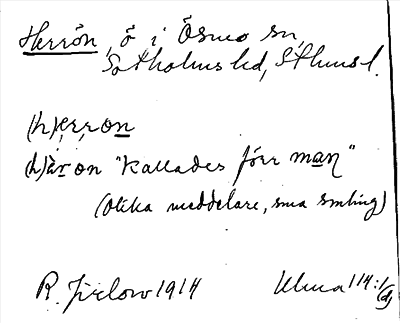 Herrön, ö i Ösmo sn,
Sotholms hd, Sthms l.
(h)ęr,ron
(h)är on "kallades förr man"
(olika meddelare, sma smting)
R. Jirlow 1914 Ulma 114:1 (d)